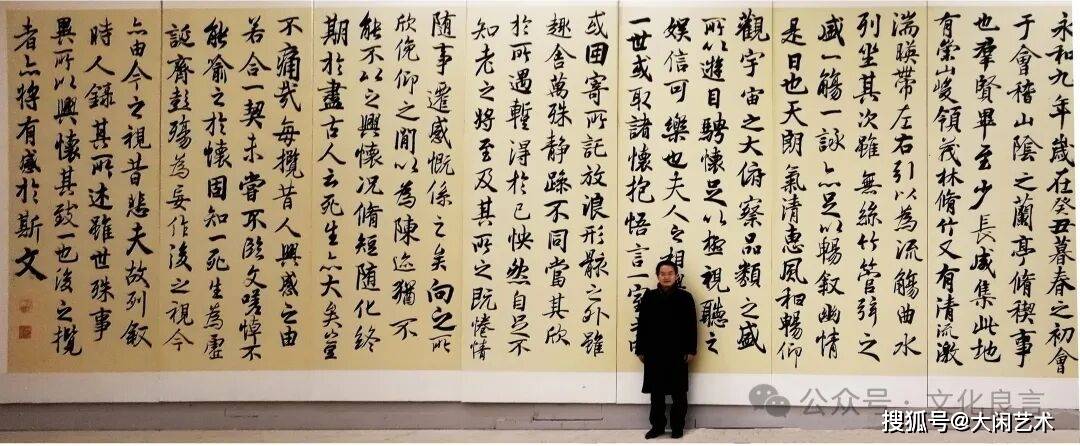 永和九年歲在癸丑暮春之初會
于會稽山陰之蘭亭脩稧事
也羣賢畢至少長咸集此地
有崇峻領茂林脩竹又有清流激
湍暎帶左右引以為流觴曲水
列坐其次雖無絲竹管弦之
盛一觴一詠亦足以暢叙幽情
是日也天朗氣清惠風和暢仰
觀宇宙之大俯察品類之盛
所以遊目騁懷足以極視聽之
娛信可樂也夫人之相
一世或取諸懷抱悟言一室之
或因寄所託放浪形骸之外雖
趣舍萬殊静躁不同當其欣
於所遇蹔得於己怏然自足不
知老之將至及其所之既惓情
隨事遷感慨係之矣向之所
欣俛仰之間以為陳迹猶不
能不以之興懷況脩短隨化終
期於盡古人云死生亦大矣豈
不痛哉每攬昔人興感之由
若合一契未嘗不臨文嗟悼不
能喻之於懷固知一死生為虛
誕齊彭殤為妄作後之視今
亦由今之視昔悲夫故列叙
時人錄其所述雖世殊事
異所以興懷其致一也後之攬
者亦將有感於斯文
公众号·文化良言
搜狐号@大闲艺术